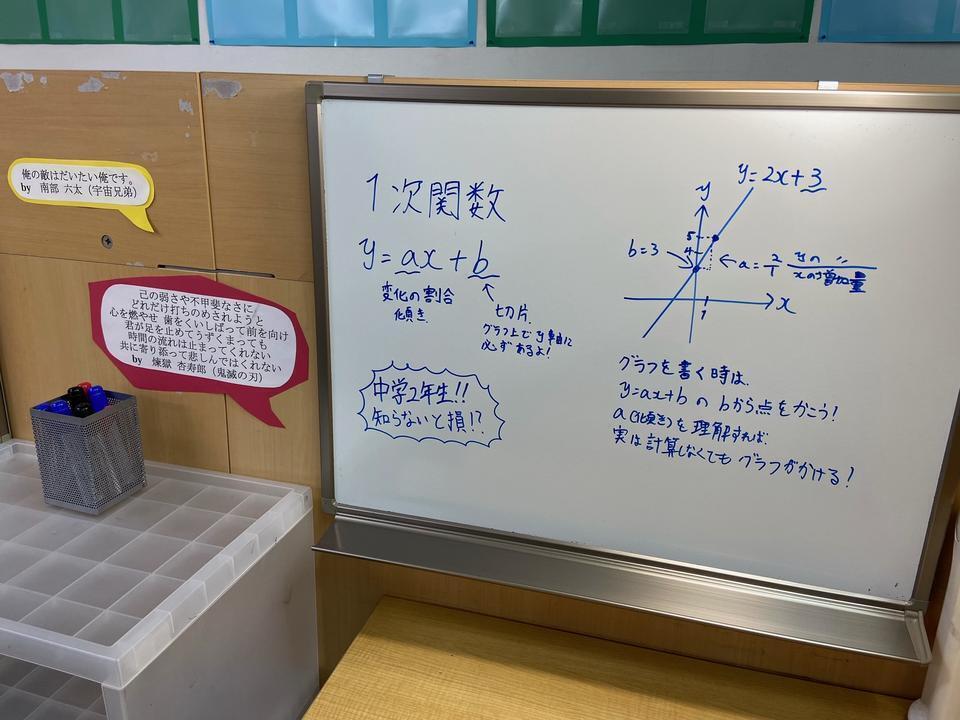 俺の敵はだいたい俺です。
by 南部 六太（宇宙兄弟）
己の弱さや不甲斐なさに
どれだけ打ちのめされようと
心を燃やせ 歯をくいしばって前を向け
君が足を止めてうずくまっても
時間の流れは止まってくれない
共に寄り添って悲しんではくれない
by 煉獄 杏寿郎（鬼滅の刃）
1次関数
y=ax+b
変化の割合
傾き
切片
グラフ上で y軸に
必ずあるよ!
中学2年生!!
知らないと損!?
y=2x+3
y
5
4
b=3
a=2/1
yの 〃
xの増加量
x
1
グラフを書く時は、
y=ax+b の bから点をかこう!
a(傾き)を理解すれば、
実は計算しなくても グラフがかける!